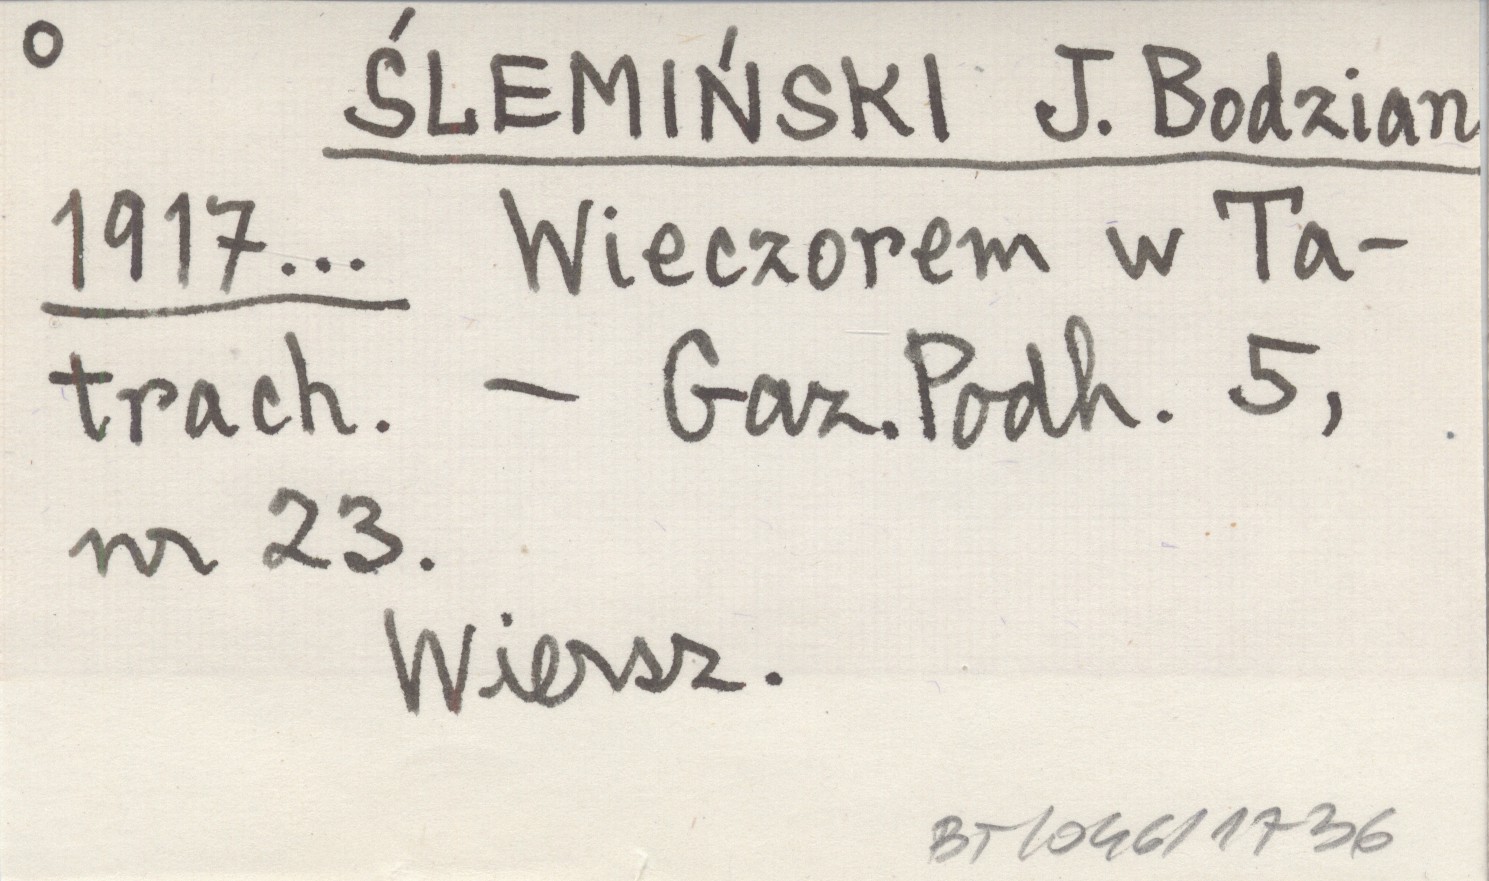 o
ŚLEMIŃSKI J. Bodzian
1917... Wieczorem w Ta-
trach. — Gaz. Podh. 5,
nr 23.
Wiersz.
BT/046/1736